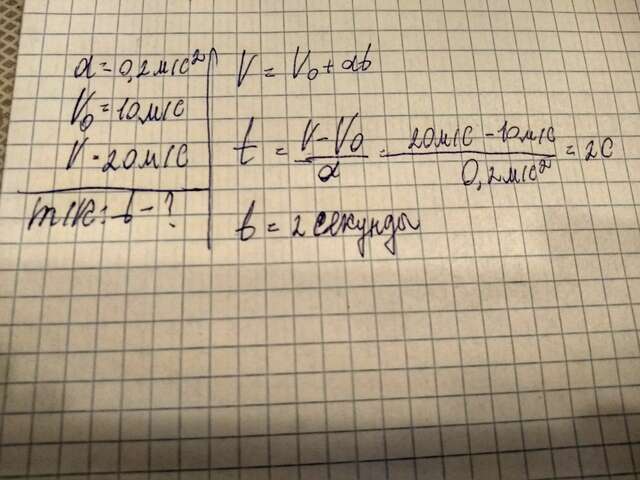 a = 0,2 м/с²
V₀ = 10 м/с
V = 20 м/с
t - ?
V = V₀ + at
t = (V - V₀)/a = (20 м/с - 10 м/с)/(0,2 м/с²) = 2с
t = 2 секунды